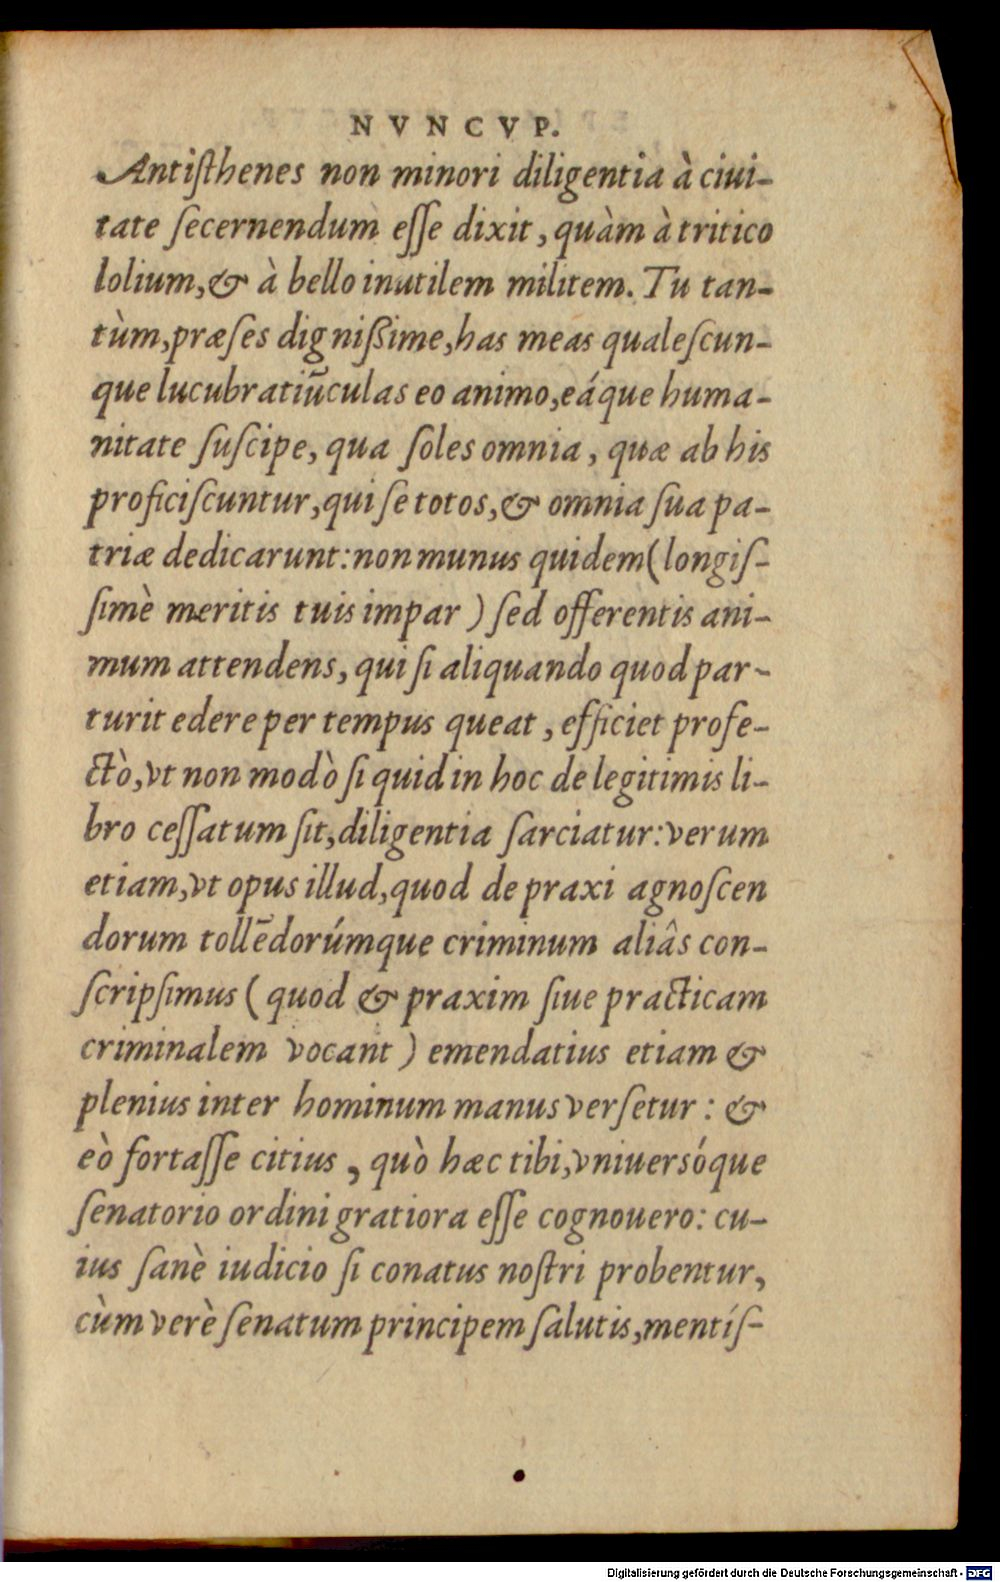 NVNCVP.
Antiſthenes non minori diligentia à ciui-
tate ſecernendum eſſe dixit, quàm à tritico
lolium, & à bello inutilem militem. Tu tan-
tùm, præſes digniſsime, has meas qualeſcun-
que lucubratiūculas eo animo, eáque huma-
nitate ſuſcipe, qua ſoles omnia, quæ ab his
proficiſcuntur, qui ſe totos, & omnia ſua pa-
triæ dedicarunt: non munus quidem (longiſ-
ſimè meritis tuis impar) ſed offerentis ani-
mum attendens, qui ſi aliquando quod par-
turit edere per tempus queat, efficiet profe-
ctò, vt non modò ſi quid in hoc de legitimis li-
bro ceſſatum ſit, diligentia ſarciatur: verum
etiam, vt opus illud, quod de praxi agnoſcen
dorum tollēdorúmque criminum aliâs con-
ſcripſimus (quod & praxim ſiue practicam
criminalem vocant) emendatius etiam &
plenius inter hominum manus verſetur: &
eò fortaſſe citius, quò hæc tibi, vniuersóque
ſenatorio ordini gratiora eſſe cognouero: cu-
ius ſanè iudicio ſi conatus noſtri probentur,
cùm verè ſenatum principem ſalutis, mentíſ-
Digitalisierung gefördert durch die Deutsche Forschungsgemeinschaft - DFG